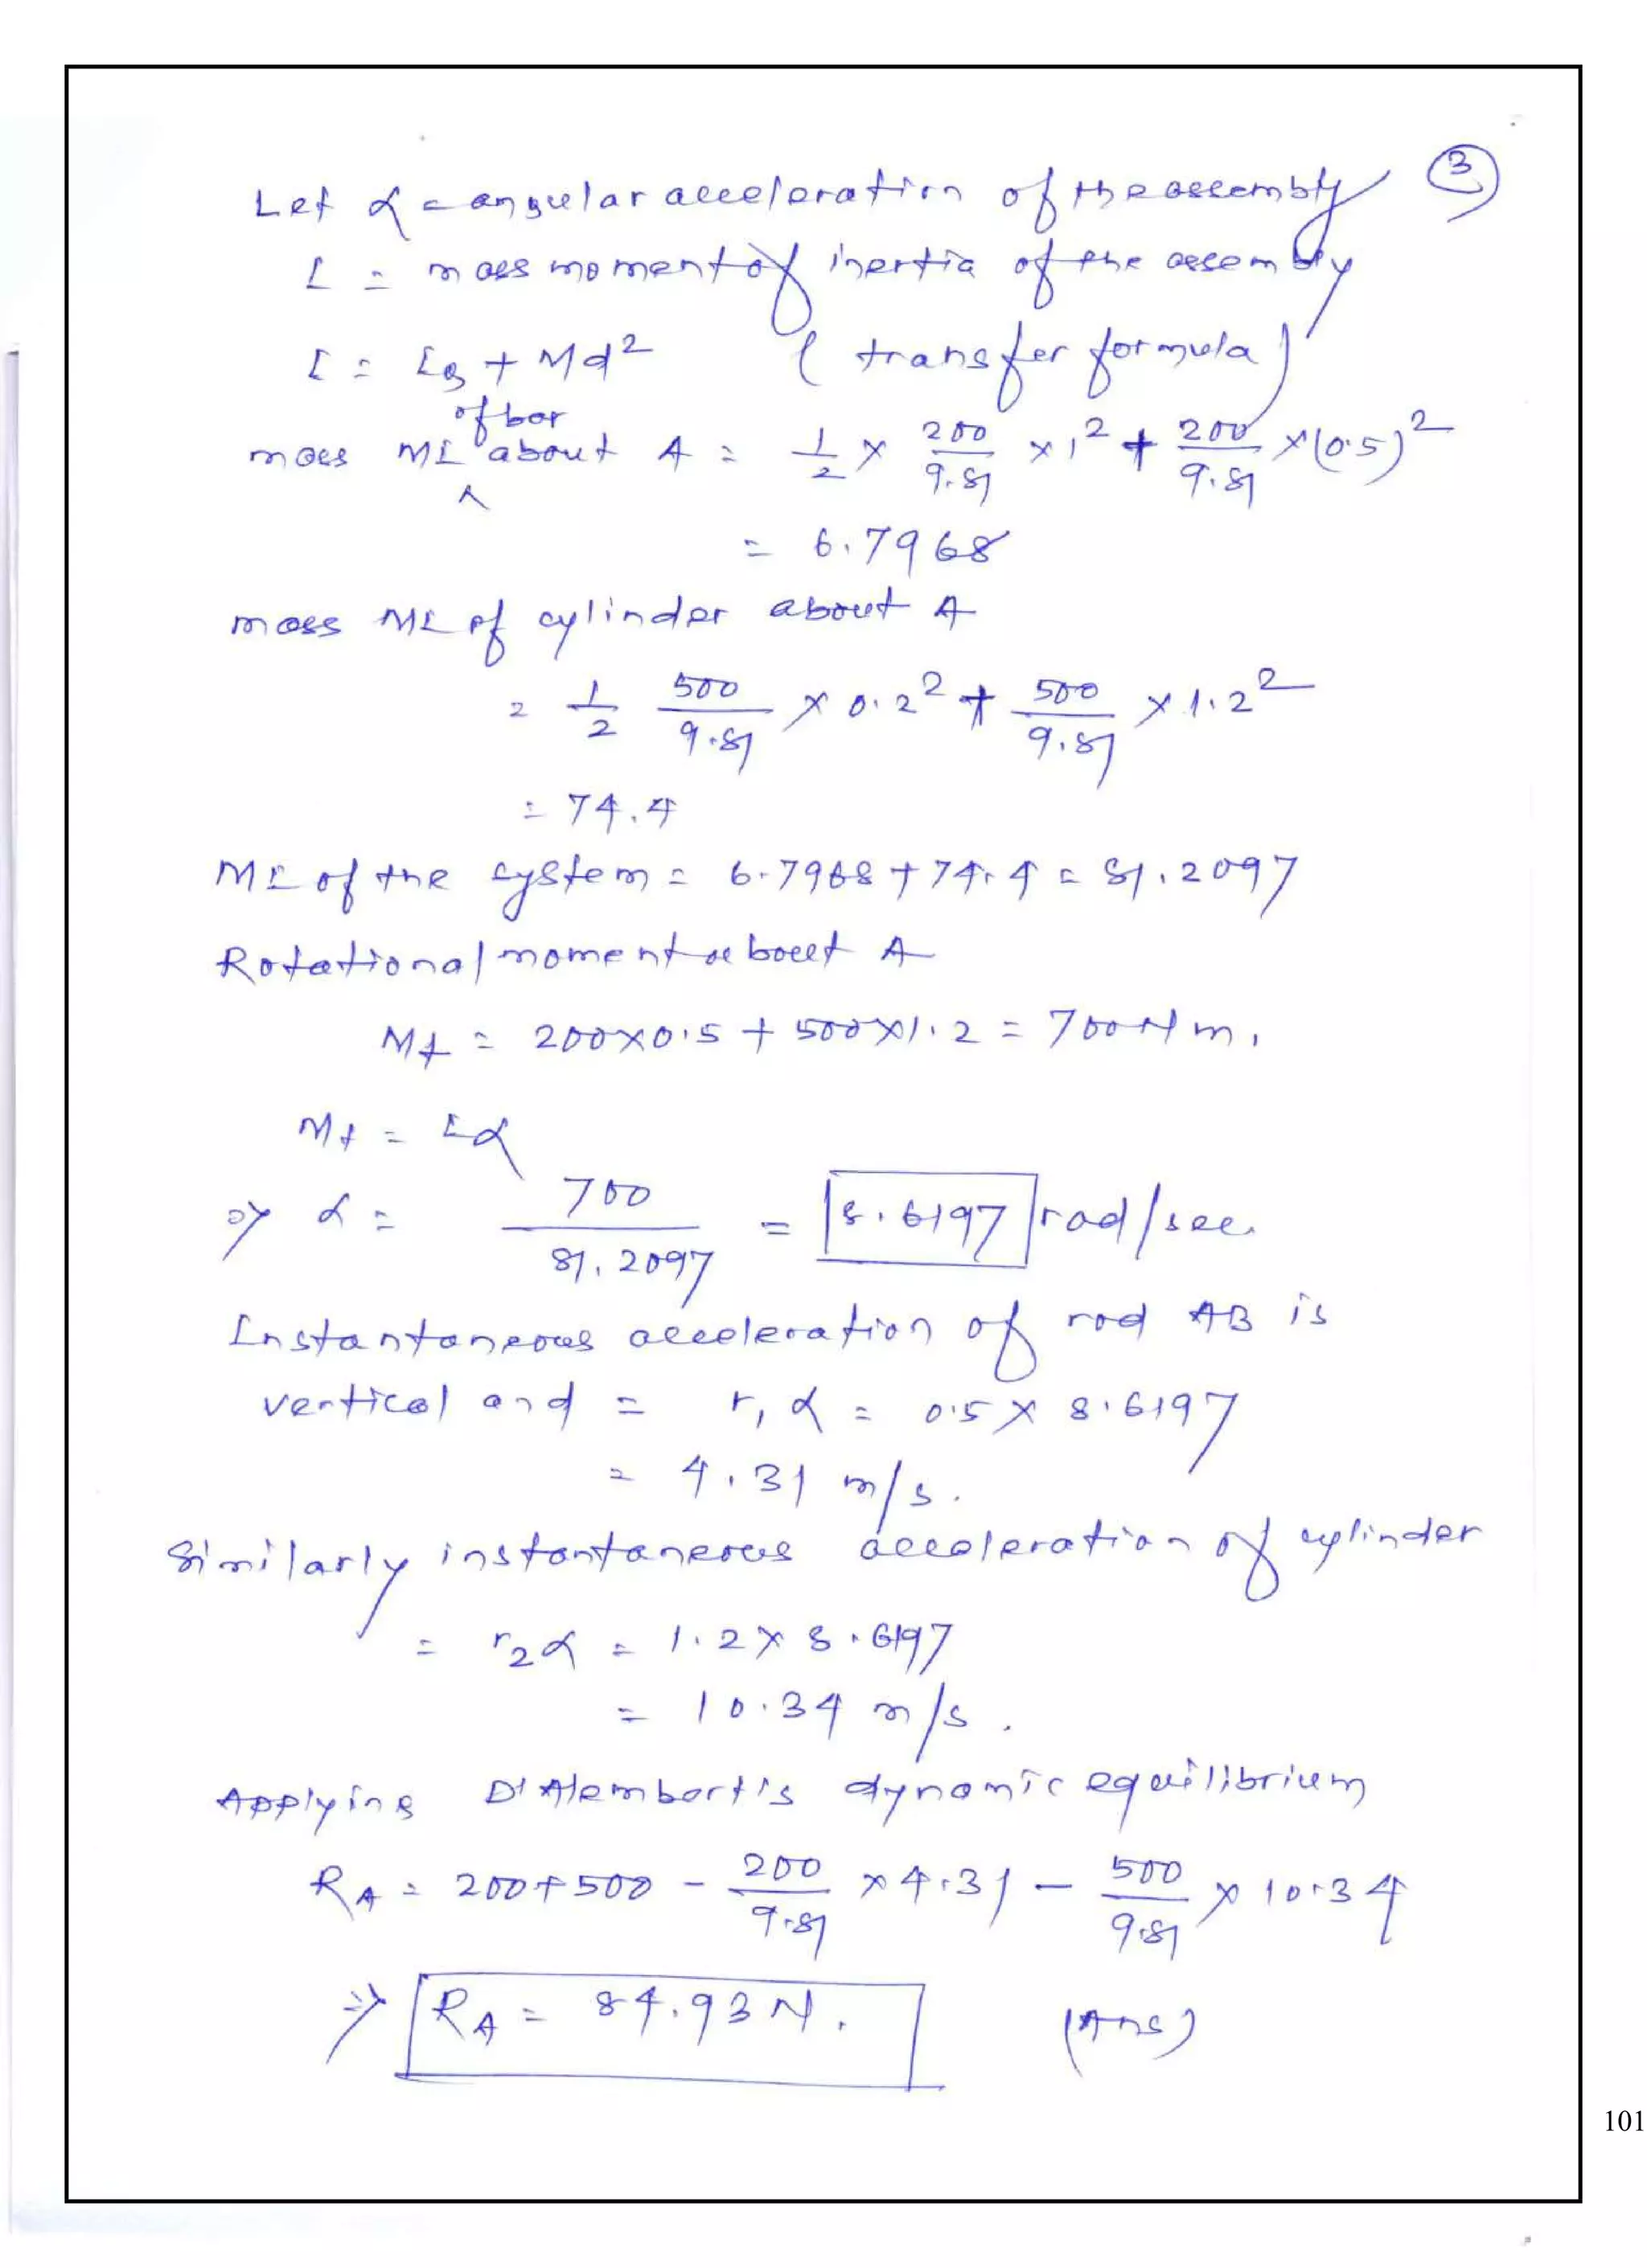 Let α = angular acceleration of the assembly ③
I = mass moment of inertia of the assembly
I = IG + Md² (transfer formula)
of bar
mass MI about A = 1/2 × 200/9.81 × 1² + 200/9.81 × (0.5)²
= 6.7968
mass MI of cylinder about A
= 1/2 500/9.81 × 0.2² + 500/9.81 × 1.2²
= 74.4
MI of the system = 6.7968 + 74.4 = 81.2097
Rotational moment about A
Mt = 200×0.5 + 500×1.2 = 700 N m.
Mt = Iα
⇒ α = 700/81.2097 = 8.6197 rad/sec.
Instantaneous acceleration of rod AB is
vertical and = r₁ α = 0.5 × 8.6197
= 4.31 m/s.
Similarly instantaneous acceleration of cylinder
= r₂α = 1.2 × 8.6197
= 10.34 m/s.
Applying D'Alembert's dynamic equilibrium
RA = 200+500 - 200/9.81 × 4.31 - 500/9.81 × 10.34
⇒ RA = 84.93 N. (Ans)
101